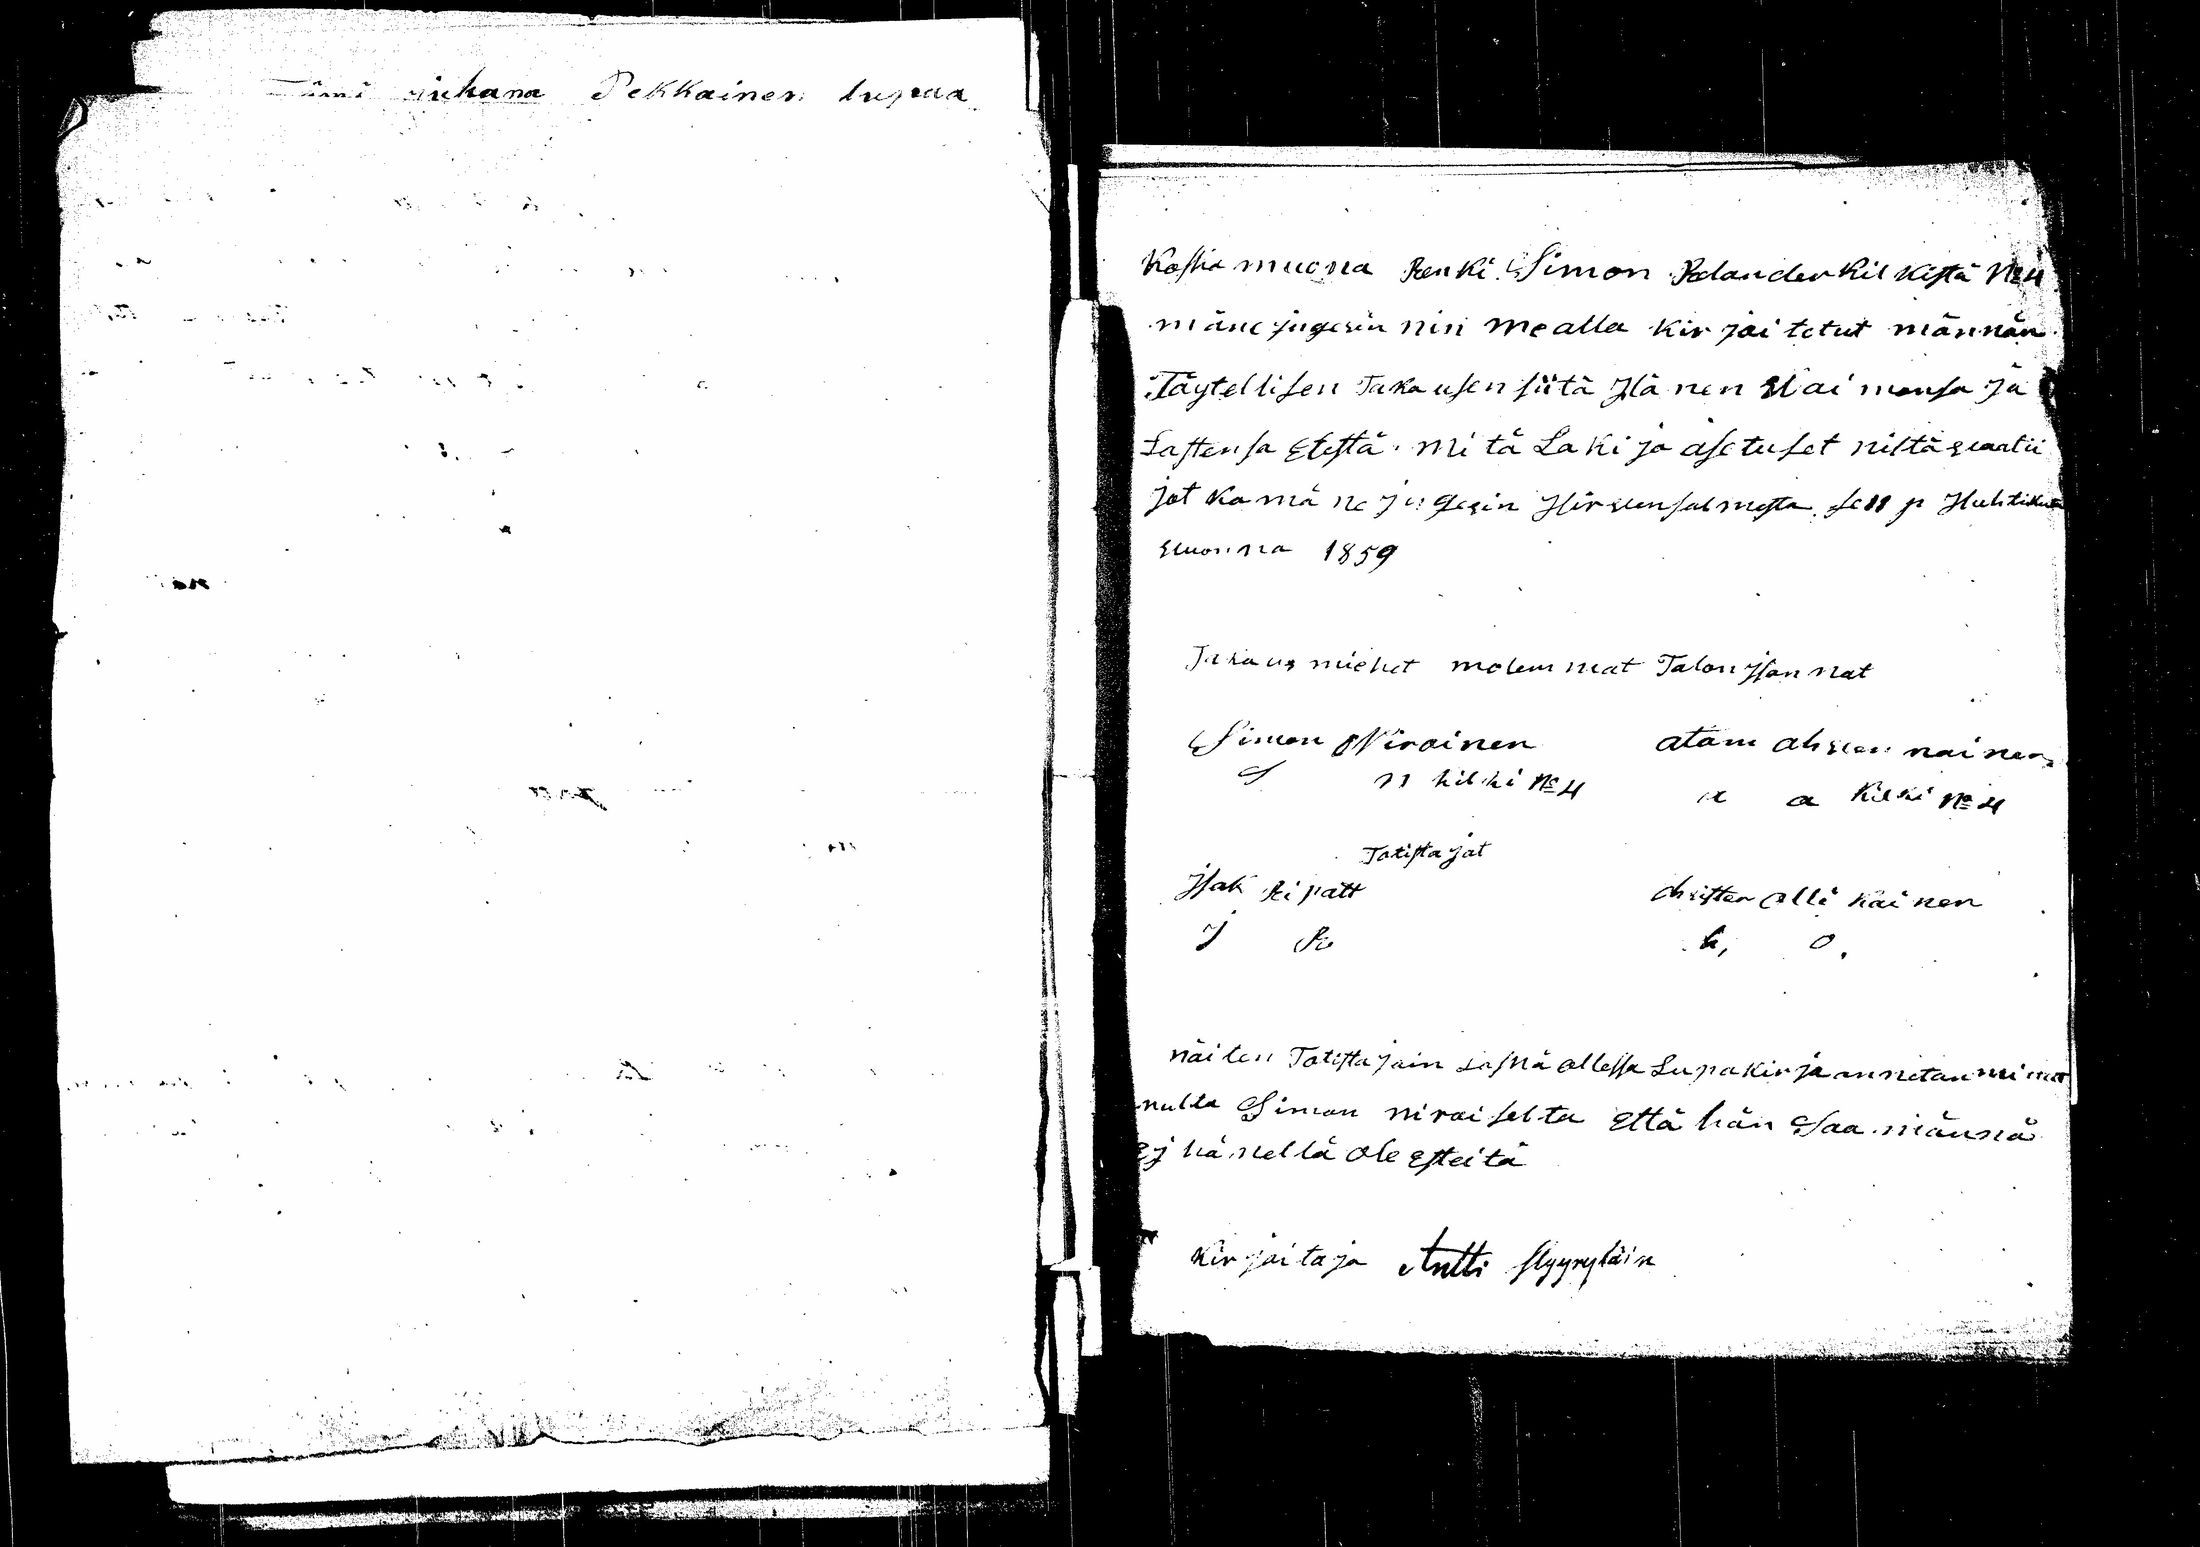 Juhana Pekkainen lupaa
Koska muona Renki Simon Relander Kilkistä No 4
mäne jugesin nin me alla kirjaitetut männän
Täytellisen Takausen siitä Hänen Waimonsa ja
Lastensa Etestä. Mitä Laki ja asetuset niltä waatii
jotka mäne jugesin Hirwensalmesta se 11 p Huhtikuu
wuonna 1859
Takaus miehet molemmat Talon Isannat
Simon Niroinen atam ahwennainen
S n kilki No 4 a a Kilki No 4
Totistajat
Isak Ripatt Ollikainen
J R k, O.
näiten Totistajain Läsnä ollessa Lupakirja annetan
Simon niroiselta Että hän Saa männä
Ej hänellä ole Esteitä
Kirjaitaja Antti Hyyryläin